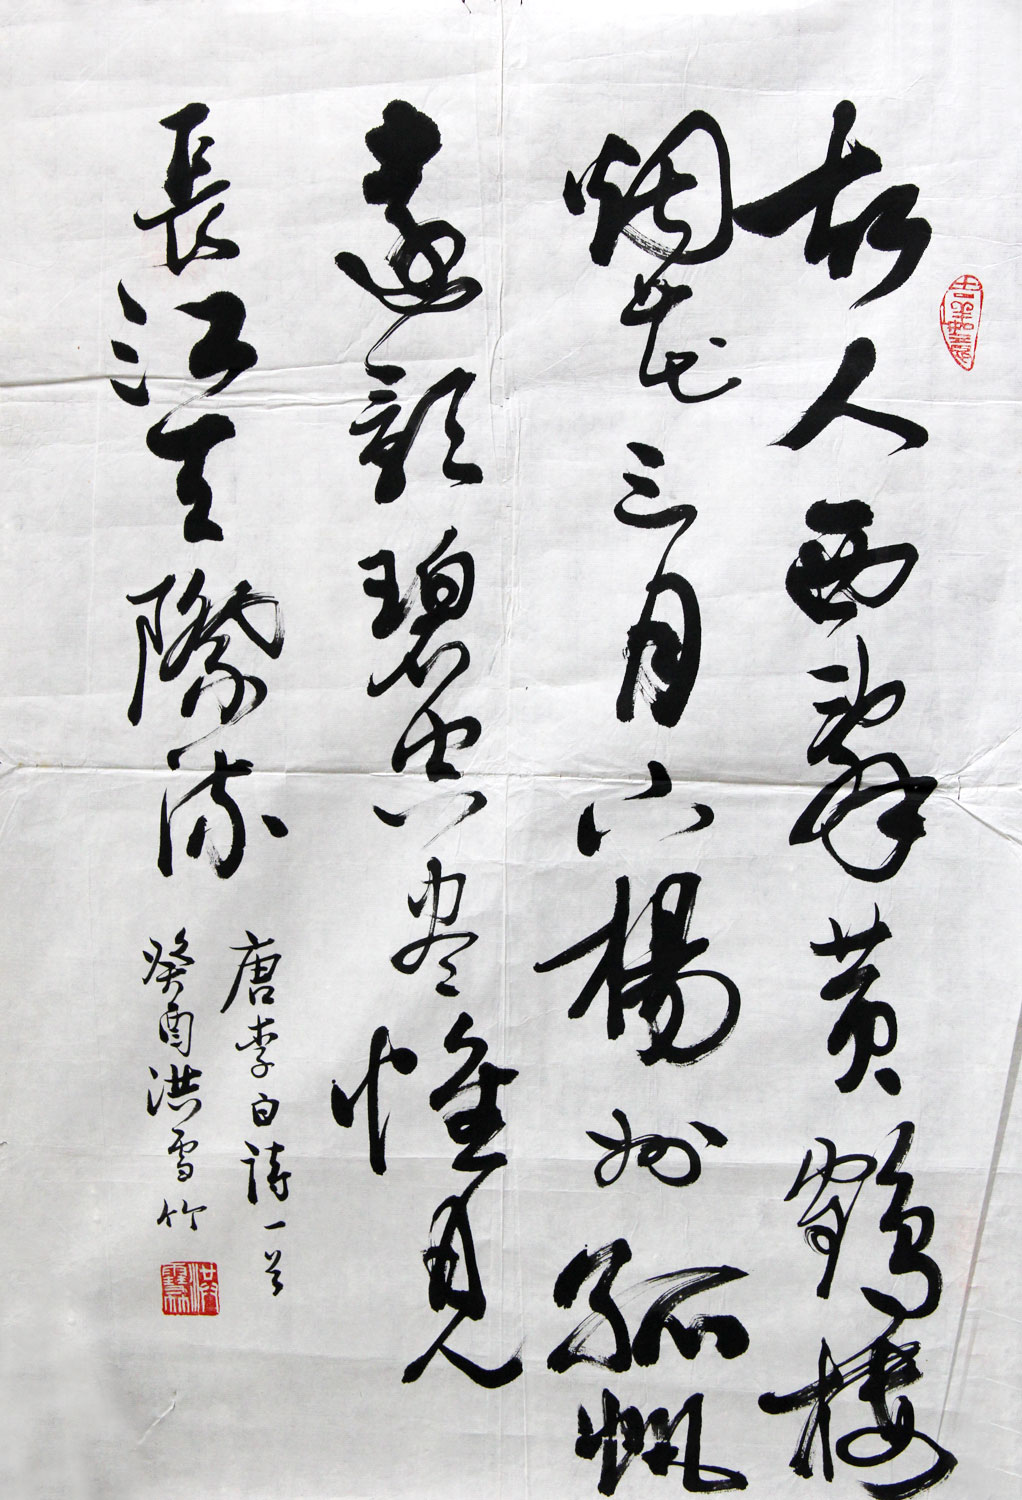 故人西辭黄鶴楼
烟花三月下楊州孤帆
遠影碧空尽惟見
長江天際流
唐李白詩一首
癸酉洪雪竹